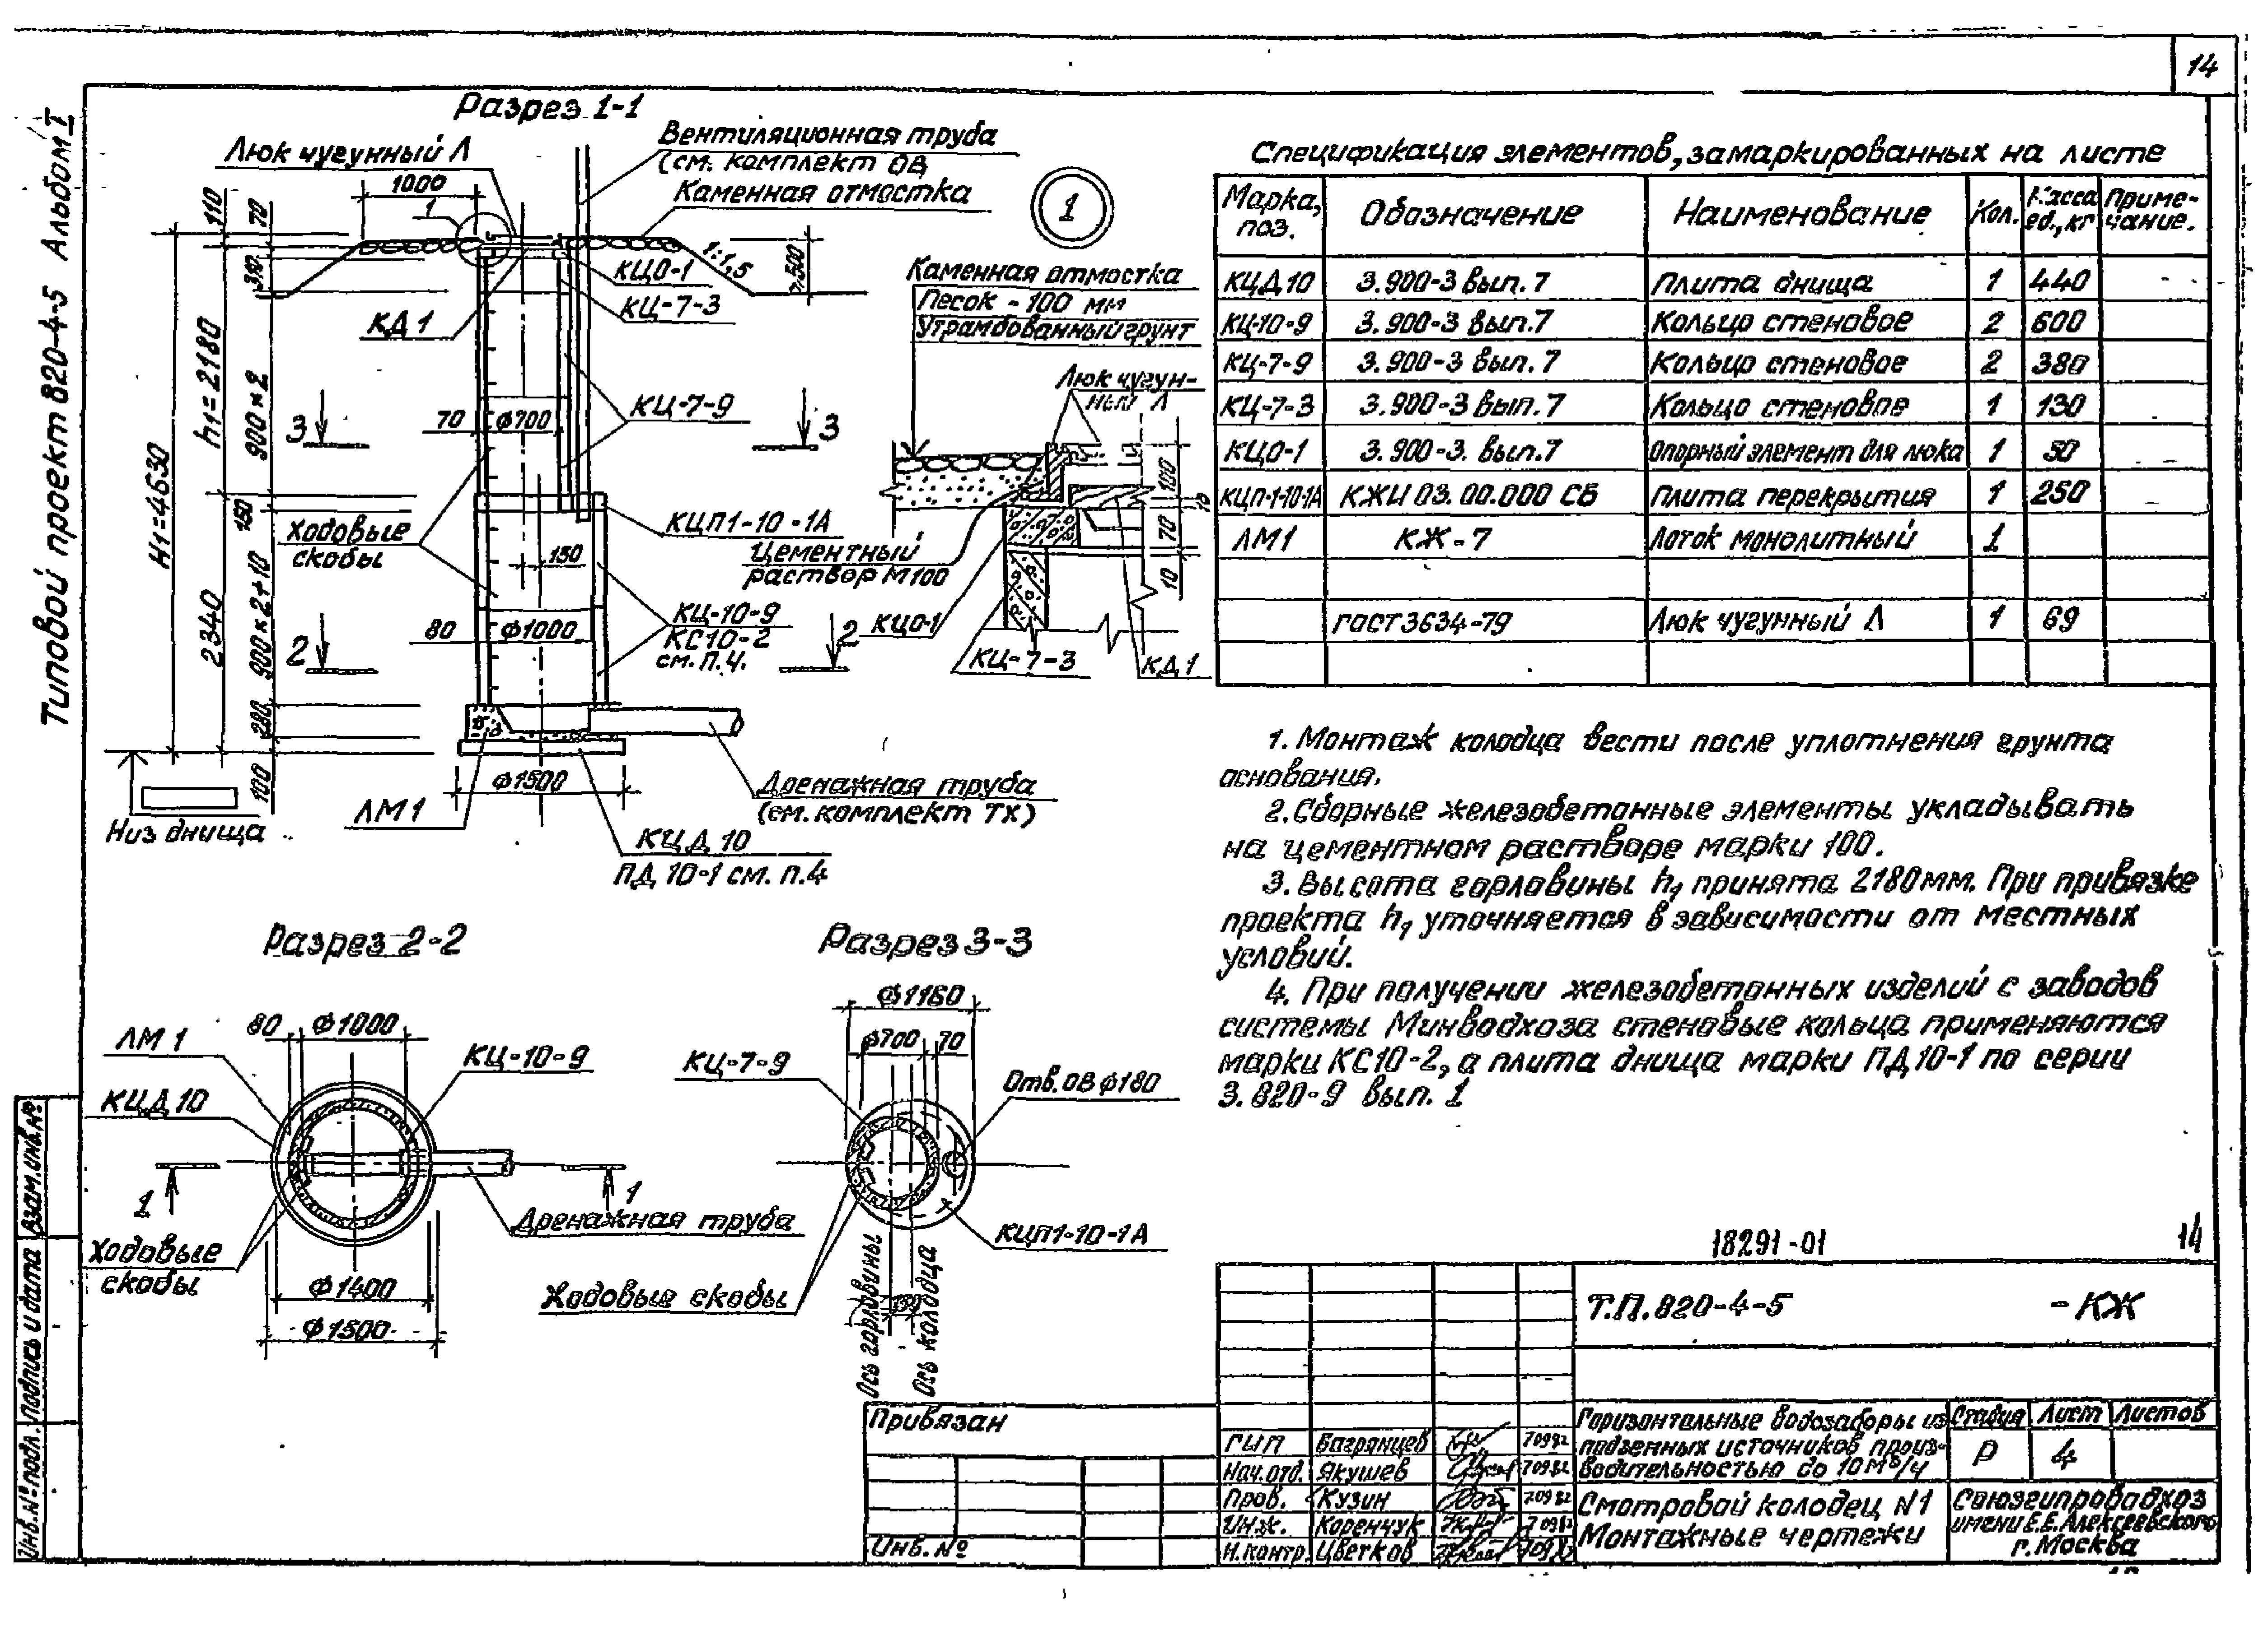 14
Типовой проект 820-4-5 Альбом I
Разрез 1-1
Люк чугунный Л
Вентиляционная труба
(см. комплект ОВ
Каменная отмостка
1000
1
110
70
1:1,5
КЦО-1
КЦ-7-3
КД 1
H1=4630
h1=2180
900×2
3
3
70
ф700
КЦ-7-9
Ходовые
скобы
150
КЦП1-10-1А
150
2340
900×2+10
КЦ-10-9
КС10-2
см. п.4.
80
ф1000
2
2
280
100
ф1500
Низ днища
ЛМ1
Дренажная труба
(см. комплект ТХ)
КЦД 10
ПД 10-1 см. п.4
1
Каменная отмостка
Песок - 100 мм
Утрамбованный грунт
Люк чугун-
ный Л
100
70
10
Цементный
раствор М100
КЦО-1
КЦ-7-3
КД 1
Спецификация элементов, замаркированных на листе
Марка, поз. Обозначение Наименование Кол. Масса ед., кг Приме-чание.
КЦД 10 3.900-3 вып. 7 Плита днища 1 440
КЦ-10-9 3.900-3 вып.7 Кольцо стеновое 2 600
КЦ-7-9 3.900-3 вып. 7 Кольцо стеновое 2 380
КЦ-7-3 3.900-3 вып. 7 Кольцо стеновое 1 130
КЦО-1 3.900-3. вып.7 Опорный элемент для люка 1 50
КЦП-1-10-1А КЖИ 03.00.000 СБ Плита перекрытия 1 250
ЛМ1 КЖ-7 Лоток монолитный 1
ГОСТ 3634-79 Люк чугунный Л 1 69
1. Монтаж колодца вести после уплотнения грунта
основания.
2. Сборные железобетонные элементы укладывать
на цементном растворе марки 100.
3. Высота горловины h1 принята 2180мм. При привязке
проекта h1 уточняется в зависимости от местных
условий.
4. При получении железобетонных изделий с заводов
системы Минводхоза стеновые кольца применяются
марки КС10-2, а плита днища марки ПД 10-1 по серии
3.820-9 вып. 1
Разрез 2-2
80
ф1000
ЛМ 1
КЦ-10-9
КЦД 10
1
1
Дренажная труба
Ходовые
скобы
ф1400
ф1500
Разрез 3-3
ф1160
ф700
70
КЦ-7-9
Отв. ОВ ф180
КЦП1-10-1А
Ходовые скобы
150
Ось горловины
Ось колодца
18291-01
14
Т.П. 820-4-5 -КЖ
Привязан
Инв. №
ГИП Багрянцев 70982
Нач.отд. Якушев 70982
Пров. Кузин 70982
Инж. Коренчук 70982
Н.контр. Цветков
Горизонтальные водозаборы из
подземных источников произ-
водительностью до 10м³/ч
Стадия Лист Листов
Р 4
Смотровой колодец N1
Монтажные чертежи
Союзгипроводхоз
имени Е.Е. Алексеевского
г. Москва
Инв. № подл. Подпись и дата Взам. инв. №